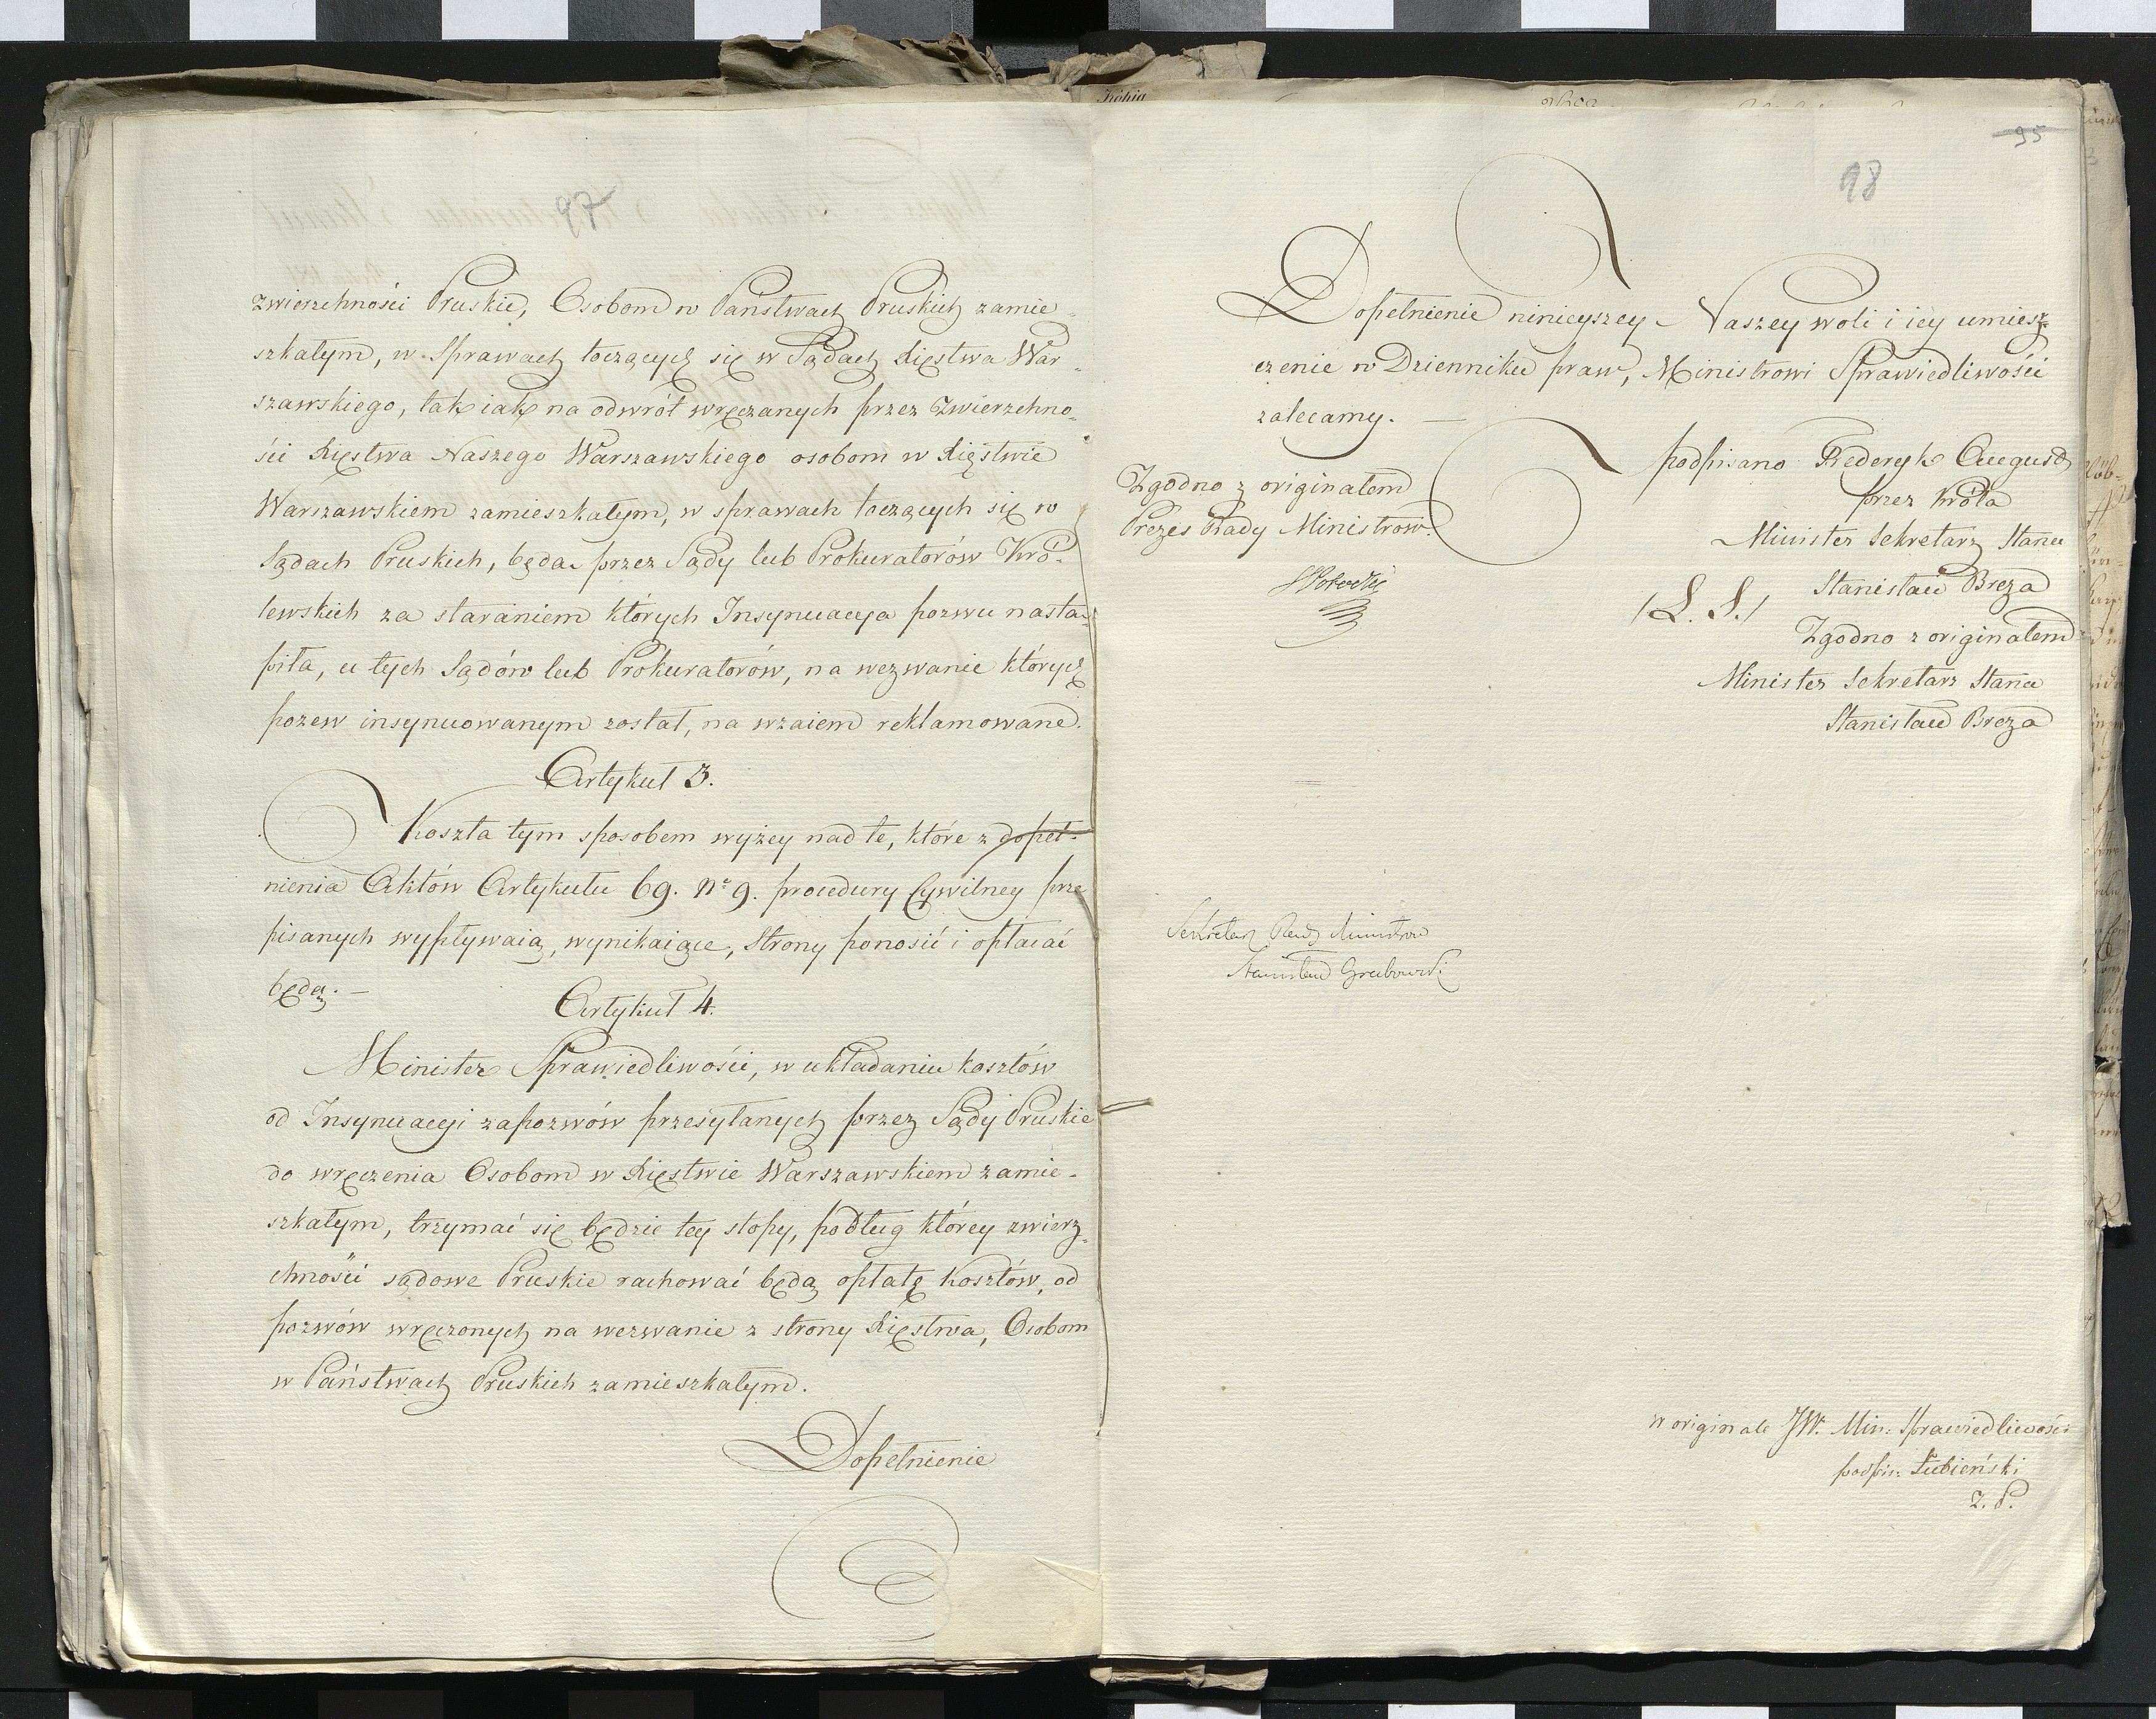 97
zwierzchności Pruskie, Osobom w Państwach Pruskich zamie-
szkałym, w Sprawach toczących się w Sądach Xięstwa War-
szawskiego, tak iak na odwrót wręczanych przez Zwierzchno-
ści Xięstwa Naszego Warszawskiego osobom w Xięstwie
Warszawskiem zamieszkałym, w sprawach toczących się w
Sądach Pruskich, będą przez Sądy lub Prokuratorów Kró-
lewskich za staraniem których Insynuacya pozwu nastą-
piła, u tych Sądów lub Prokuratorów, na wezwanie których
pozew insynuowanym został, na wzaiem reklamowane.
Artykuł 3.
Koszta tym sposobem wyżey nad te, które z dopeł-
nienia Aktów Artykułu 69. Nr 9. procedury Cywilney prze
pisanych wypływaią, wynikaiące, Strony ponosić i opłacać
będą. —
Artykuł 4.
Minister Sprawiedliwości, w układaniu kosztów
od Insynuacyi zapozwów przesyłanych przez Sądy Pruskie
do wręczenia Osobom w Xięstwie Warszawskiem zamie-
szkałym, trzymać się będzie tey stopy, podług którey zwierz-
chności sądowe Pruskie rachować będą opłatę kosztów, od
pozwów wręczonych na wezwanie z strony Xięstwa, Osobom
w Państwach Pruskich zamieszkałym.
Dopełnienie
95
98
Dopełnienie ninieyszey Naszey woli i iey umiesz-
czenie w Dzienniku praw, Ministrowi Sprawiedliwości
zalecamy. —
podpisano Frederyk August
przez Króla
Minister Sekretarz Stanu
Stanisław Breza
/L. S./
Zgodno z originałem
Minister Sekretarz Stanu
Stanisław Breza
Zgodno z originałem
Prezes Rady Ministrów.
SPotocki
Sekretarz Rady Ministrów
Stanisław Grabowski
w originale JW. Min: Sprawiedliwości
podpis: Łubieński
Z. P.